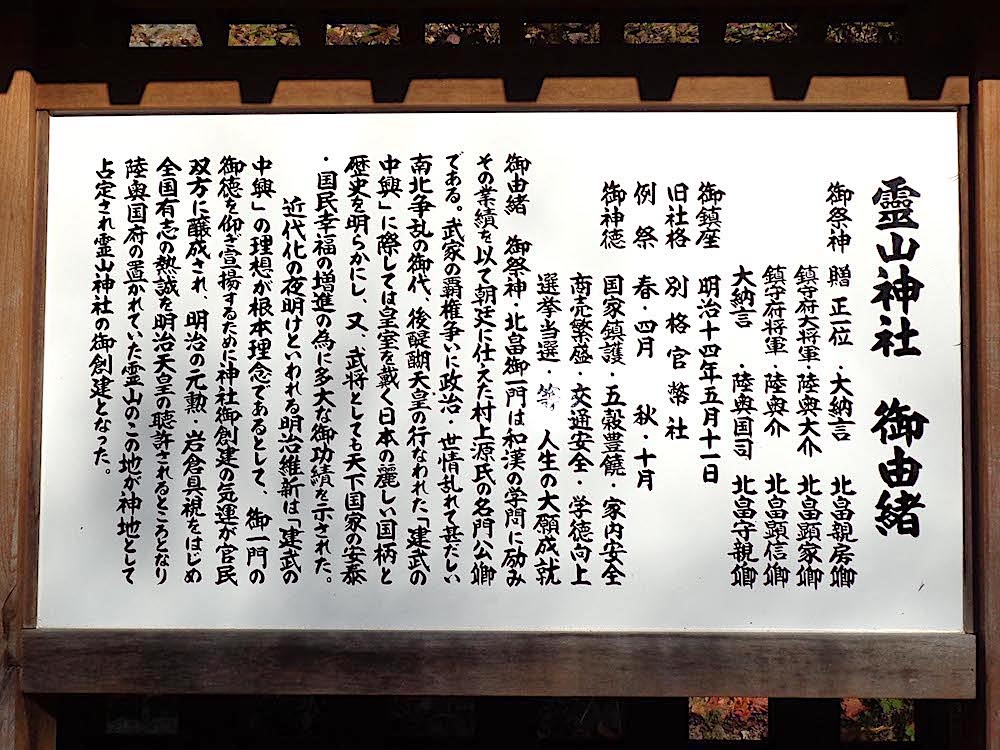 靈山神社 御由緒
御祭神 贈 正一位 ・大納言 北畠親房卿
鎮守府大将軍・陸奥大介 北畠顕家卿
鎮守府将軍・陸奥介 北畠顕信卿
大納言 ・陸奥国司 北畠守親卿
御鎮座 明治十四年五月十一日
旧社格 別格官幣社
例祭 春・四月 秋・十月
御神徳 国家鎮護・五穀豊饒・家内安全
商売繁盛・交通安全・学徳向上
選挙当選・等 人生の大願成就
御由緒 御祭神・北畠御一門は和漢の学問に励み
その業績を以て朝廷に仕えた村上源氏の名門公卿
である。武家の覇権争いに政治・世情乱れて甚だしい
南北争乱の御代、後醍醐天皇の行なわれた「建武の
中興」に際しては皇室を戴く日本の麗しい国柄と
歴史を明らかにし、又、武将としても天下国家の安泰
・国民幸福の増進の為に多大な御功績を示された。
近代化の夜明けといわれる明治維新は「建武の
中興」の理想が根本理念であるとして、御一門の
御徳を仰ぎ宣揚するために神社御創建の気運が官民
双方に醸成され、明治の元勲・岩倉具視をはじめ
全国有志の熱誠を明治天皇の聴許されるところとなり
陸奥国府の置かれていた霊山のこの地が神地として
占定され霊山神社の御創建となった。